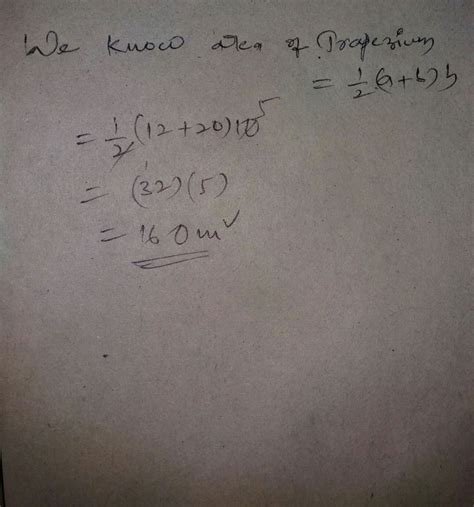 We know area of Trapezium
= 1/2 (a+b) h
= 1/2 (12+20) 10 5
= (32) (5)
= 160 m²